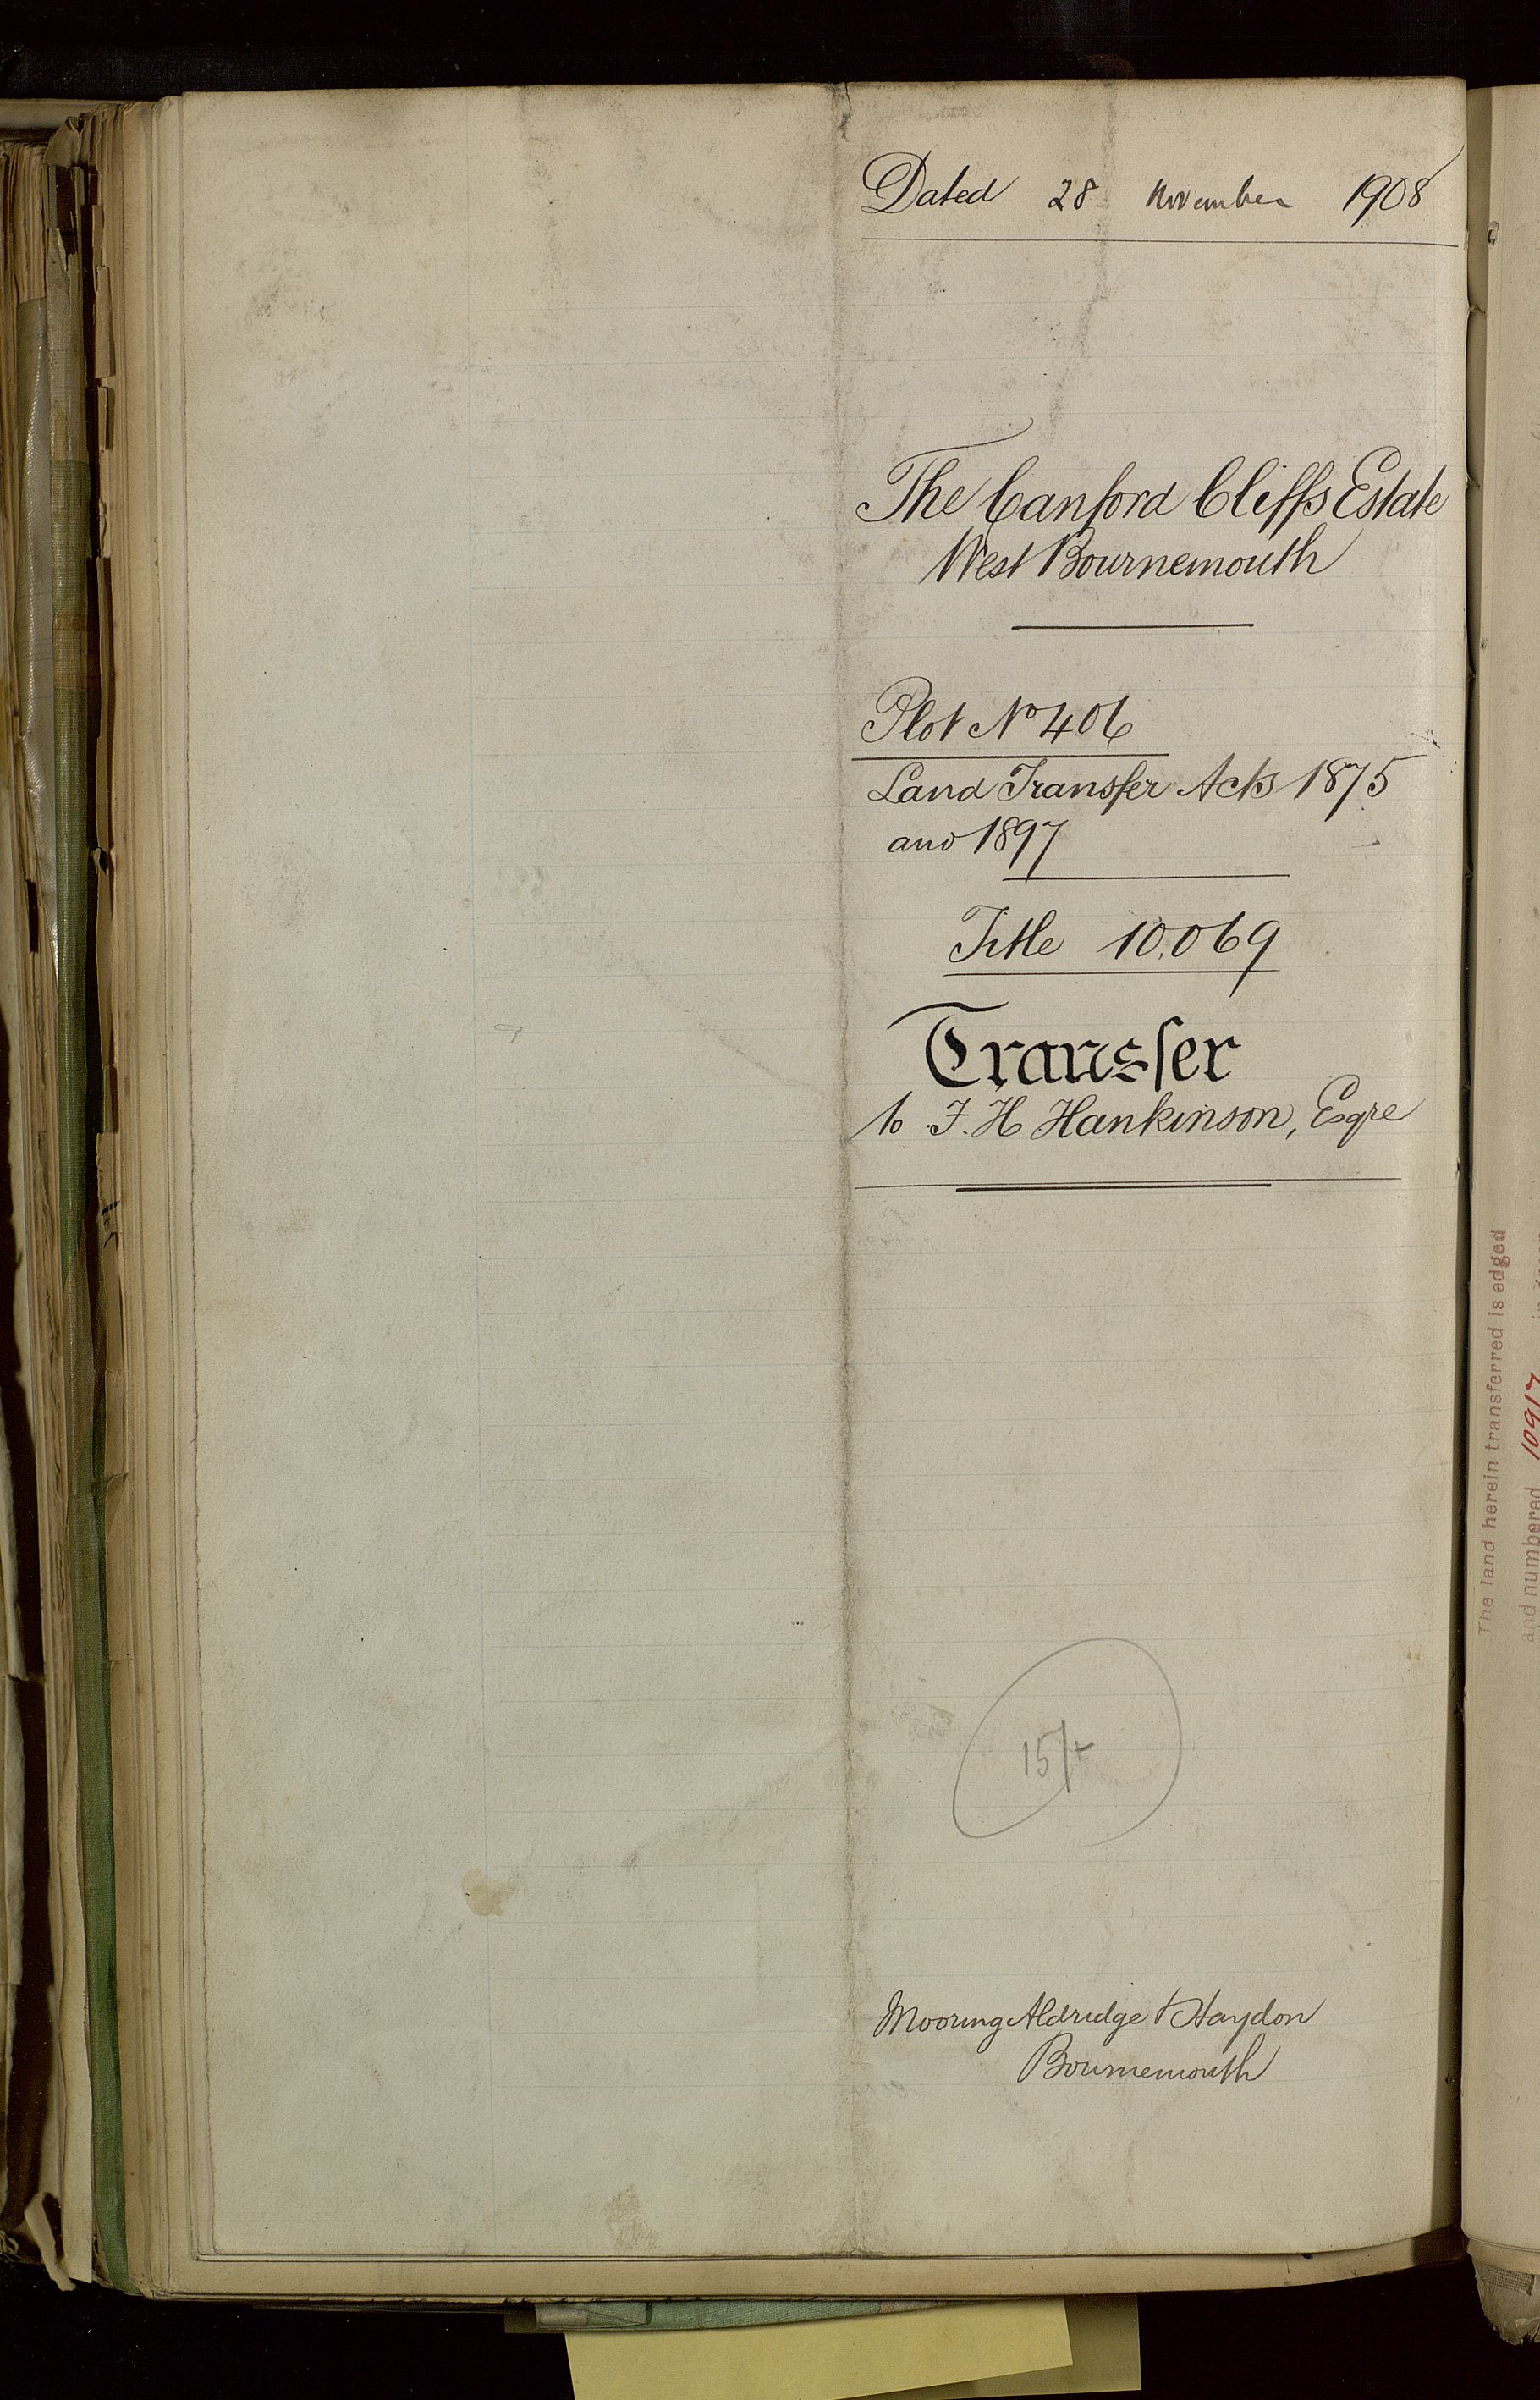 Dated 28 November 1908
The Canford Cliffs Estate
West Bournemouth
Plot No 406
Land Transfer Acts 1875
and 1897
Title 10,069
Transfer
to F. H Hankinson, Esqre
15/-
Mooring Aldridge & Haydon
Bournemouth
The land herein transferred is edged
and numbered 10917